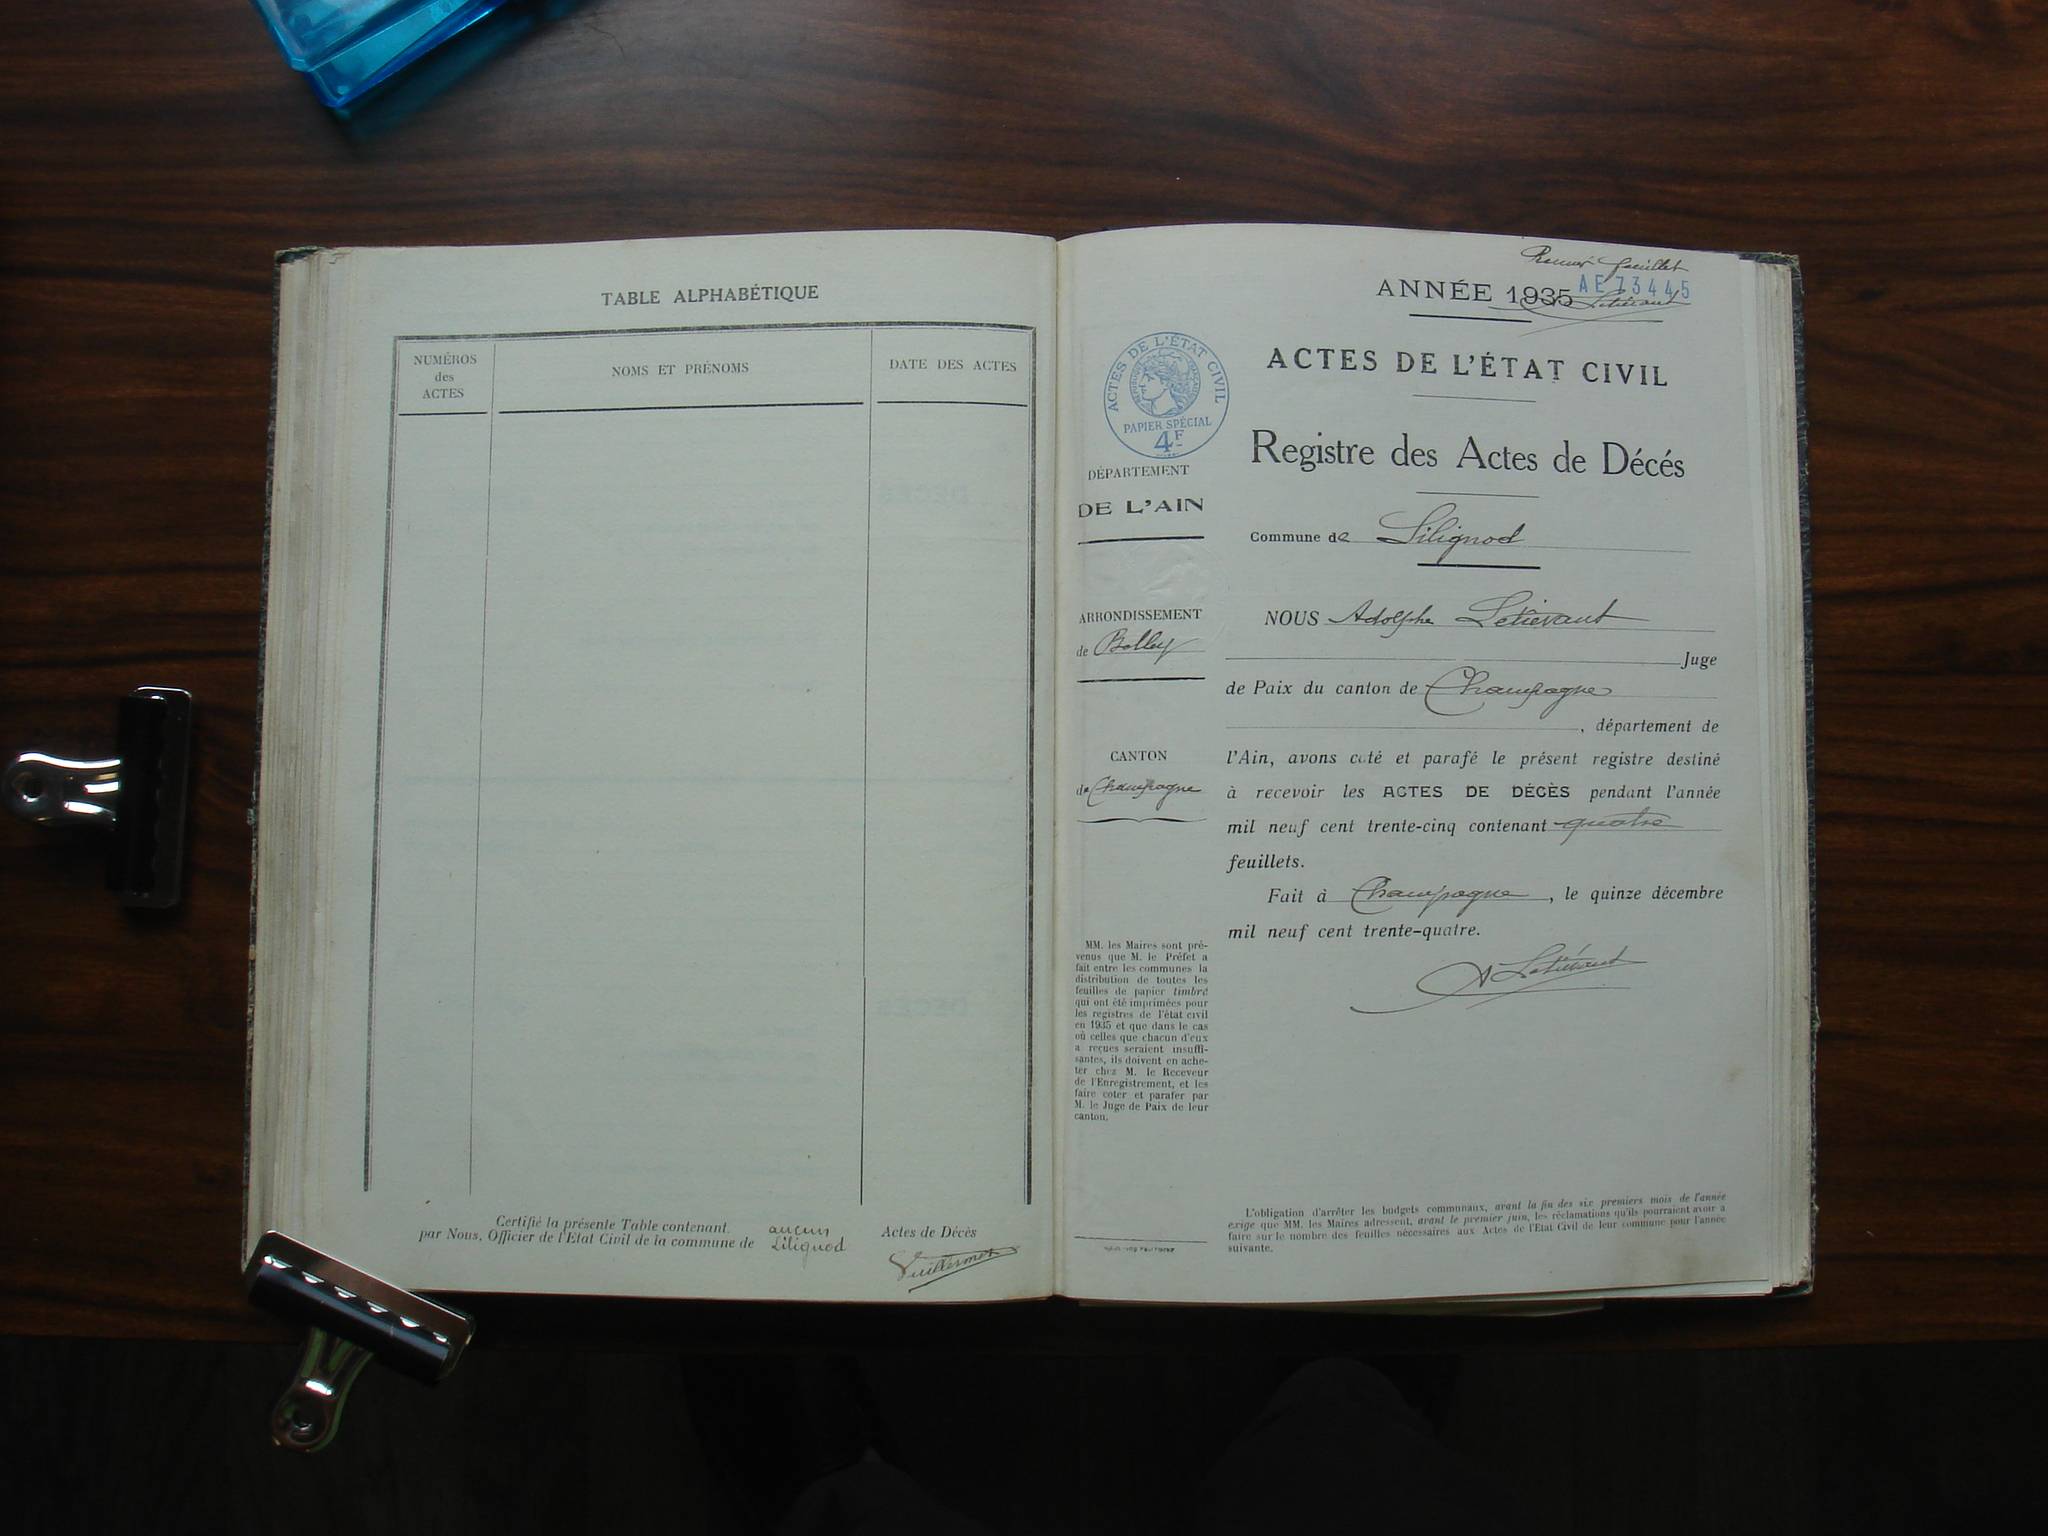 TABLE ALPHABÉTIQUE
NUMÉROS
des
ACTES
NOMS ET PRÉNOMS
DATE DES ACTES
Certifié la présente Table contenant aucun Actes de Décès
par Nous, Officier de l'Etat Civil de la commune de Lilignod
Vuillermet
Premier feuillet
ANNÉE 1935
AE 73445
Letiévant
ACTES DE L'ÉTAT CIVIL
RÉPUBLIQUE FRANÇAISE
PAPIER SPÉCIAL
4F
ACTES DE L'ÉTAT CIVIL
Registre des Actes de Décés
DÉPARTEMENT
DE L'AIN
Commune de Lilignod
ARRONDISSEMENT
de Belley
CANTON
de Champagne
NOUS Adolphe Letiévant
Juge
de Paix du canton de Champagne
, département de
l'Ain, avons coté et parafé le présent registre destiné
à recevoir les ACTES DE DÉCÈS pendant l'année
mil neuf cent trente-cinq contenant quatre
feuillets.
Fait à Champagne, le quinze décembre
mil neuf cent trente-quatre.
A Letiévant
MM. les Maires sont pré-
venus que M. le Préfet a
fait entre les communes la
distribution de toutes les
feuilles de papier timbré
qui ont été imprimées pour
les registres de l'état civil
en 1935 et que dans le cas
où celles que chacun d'eux
a reçues seraient insuffi-
santes, ils doivent en ache-
ter chez M. le Receveur
de l'Enregistrement, et les
faire coter et parafer par
M. le Juge de Paix de leur
canton.
L'obligation d'arrêter les budgets communaux, avant la fin des six premiers mois de l'année
exige que MM. les Maires adressent, avant le premier juin, les réclamations qu'ils pourraient avoir à
faire sur le nombre des feuilles nécessaires aux Actes de l'Etat Civil de leur commune pour l'année
suivante.